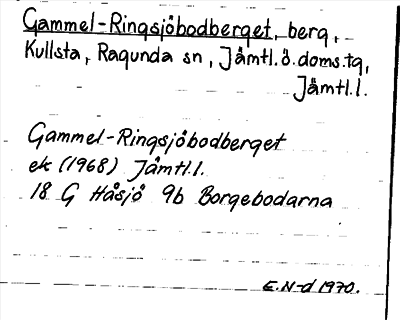 Gammel-Ringsjöbodberget, berg,
Kullsta, Ragunda sn, Jämtl. ö. doms. tg,
Jämtl. l.
Gammel-Ringsjöbodberget
ek (1968) Jämtl. l.
18 G Håsjö 9b Borgebodarna
E. N-d 1970.